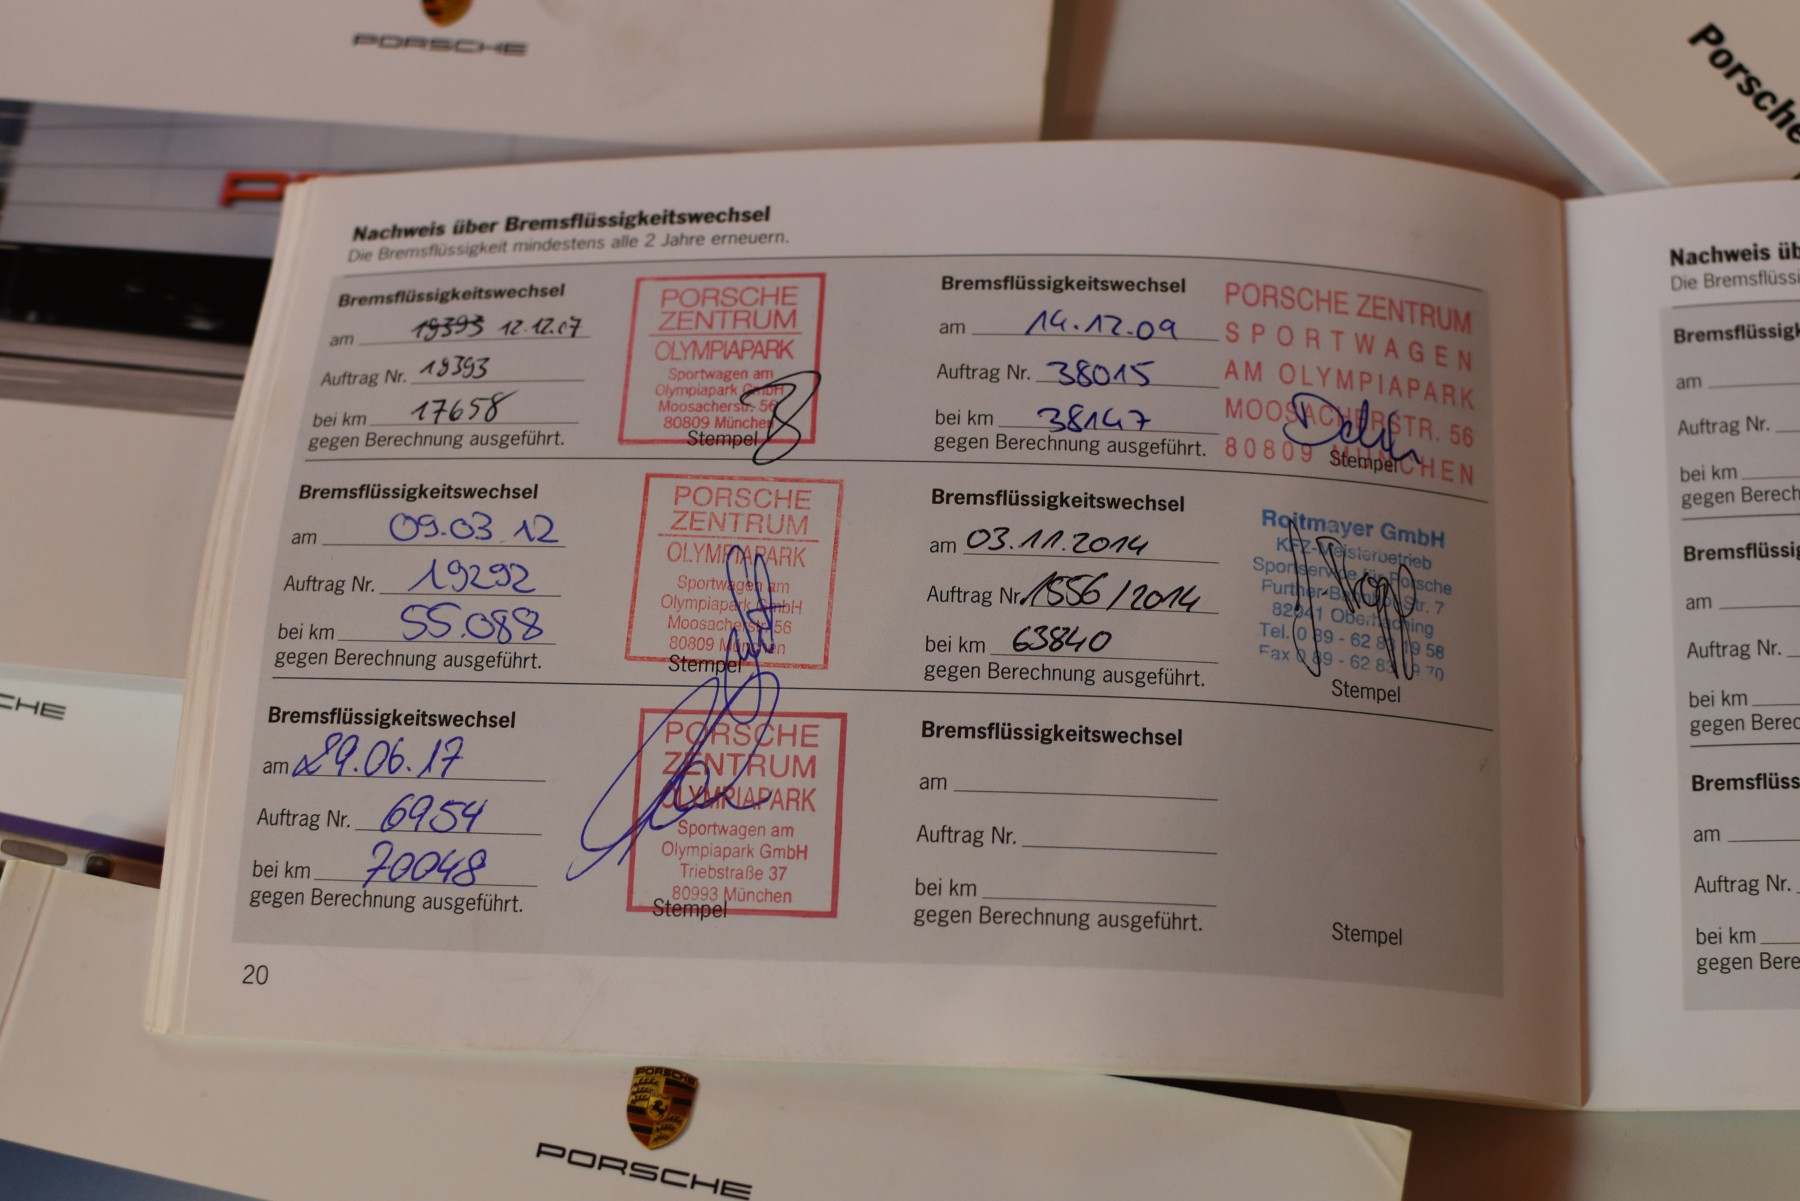 PORSCHE
Porsche
Nachweis über Bremsflüssigkeitswechsel
Die Bremsflüssigkeit mindestens alle 2 Jahre erneuern.
Bremsflüssigkeitswechsel
am 19393 12.12.07
Auftrag Nr. 19393
bei km 17658
gegen Berechnung ausgeführt.
PORSCHE
ZENTRUM
OLYMPIAPARK
Sportwagen am
Olympiapark GmbH
Moosacherstr. 56
80809 München
Stempel
Bremsflüssigkeitswechsel
am 14.12.09
Auftrag Nr. 38015
bei km 38147
gegen Berechnung ausgeführt.
PORSCHE ZENTRUM
SPORTWAGEN
AM OLYMPIAPARK
MOOSACHERSTR. 56
80809 MÜNCHEN
Stempel
Bremsflüssigkeitswechsel
am 09.03.12
Auftrag Nr. 19292
bei km 55.088
gegen Berechnung ausgeführt.
PORSCHE
ZENTRUM
OLYMPIAPARK
Sportwagen am
Olympiapark GmbH
Moosacherstr. 56
80809 München
Stempel
Bremsflüssigkeitswechsel
am 03.11.2014
Auftrag Nr. 1556/2014
bei km 63840
gegen Berechnung ausgeführt.
Roitmayer GmbH
KFZ-Meisterbetrieb
Sportservice für Porsche
Further-Bahnhof-Str. 7
82041 Oberhaching
Tel. 0 89 - 62 83 19 58
Fax 0 89 - 62 83 19 70
Stempel
Bremsflüssigkeitswechsel
am 29.06.17
Auftrag Nr. 6954
bei km 70048
gegen Berechnung ausgeführt.
PORSCHE
ZENTRUM
OLYMPIAPARK
Sportwagen am
Olympiapark GmbH
Triebstraße 37
80993 München
Stempel
Bremsflüssigkeitswechsel
am
Auftrag Nr.
bei km
gegen Berechnung ausgeführt.
Stempel
20
Nachweis üb
Die Bremsflüssi
Bremsflüssigk
am
Auftrag Nr.
bei km
gegen Berech
Bremsflüssig
am
Auftrag Nr.
bei km
gegen Berec
Bremsflüss
am
Auftrag Nr.
bei km
gegen Bere
CHE
PORSCHE
PORSCHE